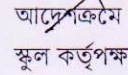 আদেশক্রমে
স্কুল কর্তৃপক্ষ